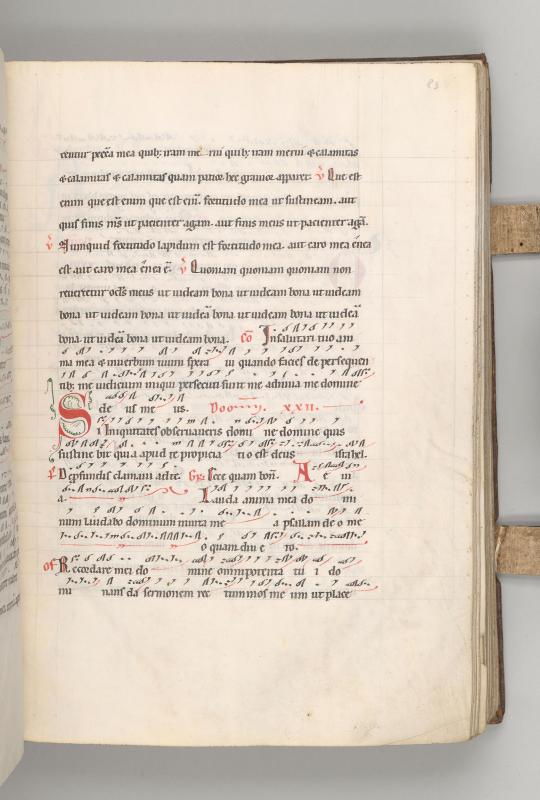 rentur pecc̄a mea quib; iram me rui quib; iram merui & calamitas
& calamitas & calamitas quam patior hec grauior apparet. v̄ Que est
enim que est enim que est eni᷒ fortitudo mea ut sustineam. aut
quis finis m̄s ut pacienter agam. aut finis meus ut pacienter agā.
v̄ Numquid fortitudo lapidum est fortitudo mea. aut caro mea enea
est aut caro mea enea ē. v̄ Quoniam quoniam quoniam non
reuertetur oc̄ls meus ut uideam bona ut uideam bona ut uideam
bona ut uideam bona ut uideā bona ut uideam bona ut uideā
bona ut uideā bona ut uideam bona. cō In salutari tuo ani
ma mea & in uerbum tuum spera ui quando facies de persequen
tib; me iudicium iniqui persecuti sunt me adiuua me domine
de us me us. Dom̄ XXII.
Si iniquitates obseruaueris domi ne domine quis
sustine bit quia apud te propicia ti o est deus israhel.
p̄ De p̄fundis clamaui ad te. Gr̄. Ecce quam bon̄. A e ui
a. Lauda anima mea do mi
num laudabo dominum in uita me a psallam de o me
o quam diu e ro.
of Recordare mei do mine omni potenta tu i do
mi nans da sermonem rec tum in os me um ut place
83